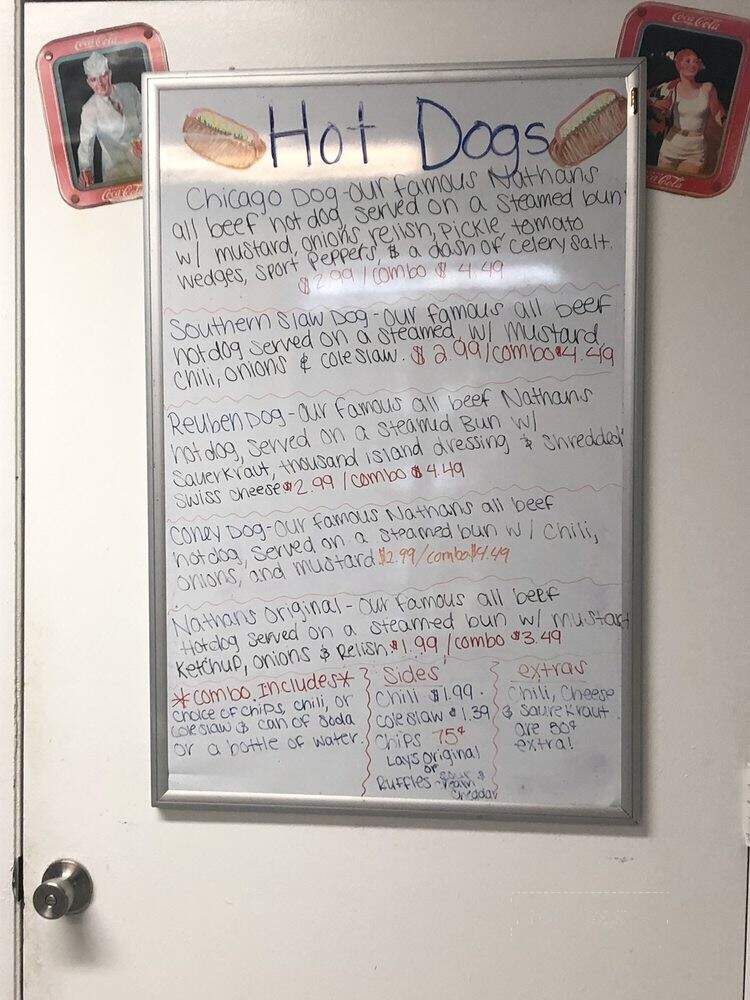 Coca-Cola
Coca-Cola
Hot Dogs
Chicago Dog - our famous Nathans
all beef hot dog, served on a steamed bun
w/ mustard, onions, relish, pickle, tomato
wedges, sport peppers, & a dash of celery salt.
$2.99 / combo $4.49
Southern Slaw Dog - our famous all beef
hotdog served on a steamed, w/ mustard,
chili, onions & coleslaw. $2.99/combo $4.49
Reuben Dog - Our famous all beef Nathans
hotdog, served on a steamed Bun w/
sauerkraut, thousand island dressing & shredded
swiss cheese $2.99 / combo $4.49
Coney Dog - Our famous Nathans all beef
hotdog, served on a steamed bun w/ chili,
onions, and mustard $2.99/combo $4.49
Nathans original - our famous all beef
Hotdog served on a steamed bun w/ mustard
Ketchup, onions & Relish. $1.99 / combo $3.49
*combo includes*
choice of chips, chili, or
coleslaw & can of soda
or a bottle of water.
Sides
Chili $1.99
coleslaw $1.39
Chips 75¢
Lays original
or
Ruffles - sour &
cream
cheddar
extras
Chili, Cheese
& SaureKraut
are 50¢
extra!
Coca-Cola
Coca-Cola